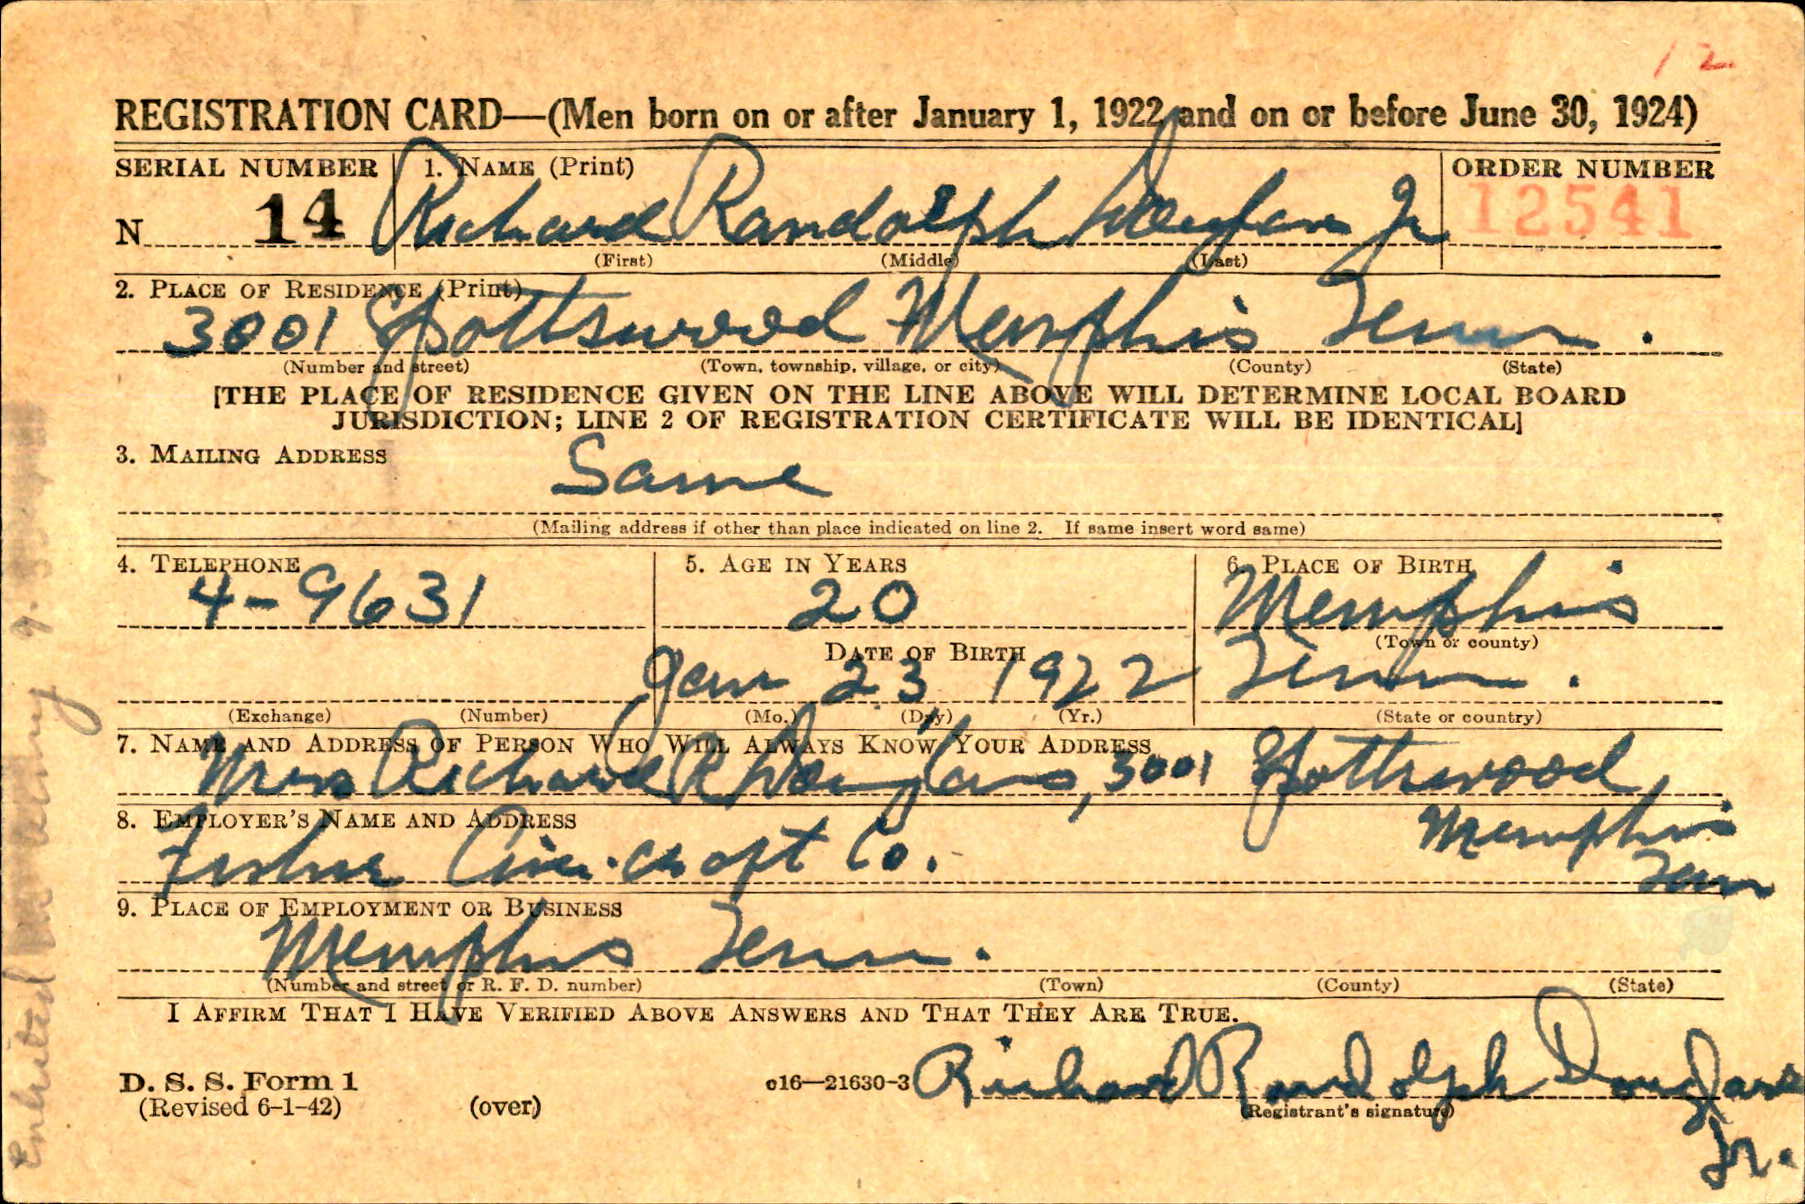 12
REGISTRATION CARD—(Men born on or after January 1, 1922 and on or before June 30, 1924)
SERIAL NUMBER 1. NAME (Print) ORDER NUMBER
N 14 Richard Randolph Douglas Jr 12541
(First) (Middle) (Last)
2. PLACE OF RESIDENCE (Print)
3001 Spottswood Memphis Tenn.
(Number and street) (Town, township, village, or city) (County) (State)
[THE PLACE OF RESIDENCE GIVEN ON THE LINE ABOVE WILL DETERMINE LOCAL BOARD
JURISDICTION; LINE 2 OF REGISTRATION CERTIFICATE WILL BE IDENTICAL]
3. MAILING ADDRESS
Same
(Mailing address if other than place indicated on line 2. If same insert word same)
4. TELEPHONE 5. AGE IN YEARS 6. PLACE OF BIRTH
4-9631 20 Memphis
(Town or county)
DATE OF BIRTH
Jan 23, 1922 Tenn.
(Exchange) (Number) (Mo.) (Day) (Yr.) (State or country)
7. NAME AND ADDRESS OF PERSON WHO WILL ALWAYS KNOW YOUR ADDRESS
Mrs Richard R Douglas, 3001 Spottswood
8. EMPLOYER'S NAME AND ADDRESS Memphis
Fisher Air-craft Co. Tenn
9. PLACE OF EMPLOYMENT OR BUSINESS
Memphis Tenn.
(Number and street or R. F. D. number) (Town) (County) (State)
I AFFIRM THAT I HAVE VERIFIED ABOVE ANSWERS AND THAT THEY ARE TRUE.
D. S. S. Form 1 c16—21630-3 Richard Randolph Douglas
(Revised 6-1-42) (over) (Registrant's signature)
Jr.
Enlisted